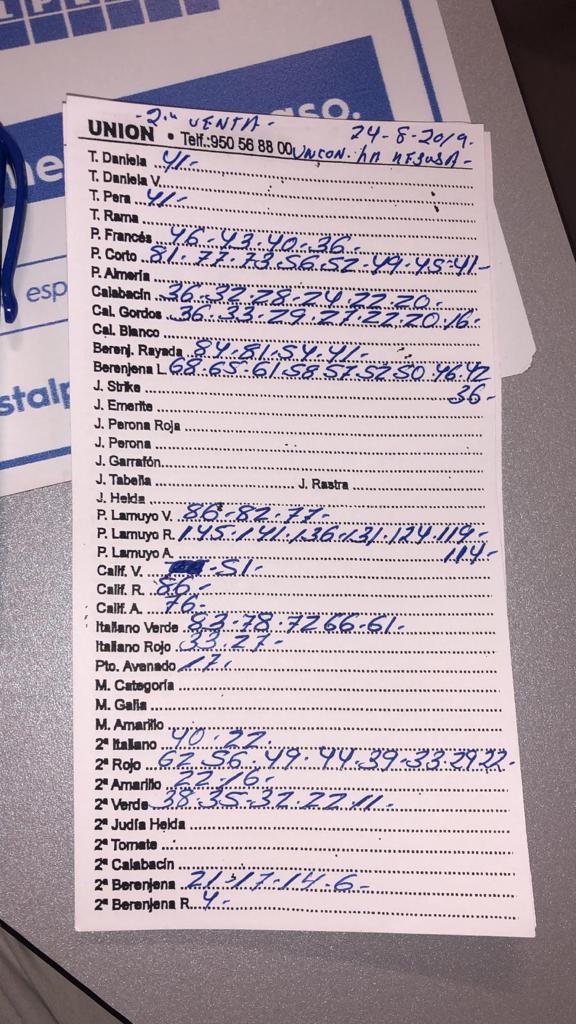 aso.
ne
esp
stalp
- 2ª VENTA -
24-8-2019.
UNION • Telf.:950 56 88 00 UNION. LA REDUSA -
T. Daniela 41-
T. Daniela V.
T. Pera 41-
T. Rama
P. Francés 46-43-40-36-
P. Corto 81-77-73-56-52-49-45-41-
P. Almería
Calabacín 36-32-28-24-22-20-
Cal. Gordos 36-33-29-27-22-20-16-
Cal. Blanco
Berenj. Rayada 84-81-54-41-
Berenjena L. 68-65-61-58-57-52-50-46-42
36-
J. Strike
J. Emerite
J. Perona Roja
J. Perona
J. Garrafón
J. Tabella J. Rastra
J. Helda
P. Lamuyo V. 86-82-77-
P. Lamuyo R. 145-141-136-131-124-119-
114-
P. Lamuyo A.
Calif. V. -51-
Calif. R. 86-
Calif. A. 76-
Italiano Verde 83-78-72-66-61-
Italiano Rojo 33-27-
Pto. Avenado 17-
M. Categoría
M. Galia
M. Amarillo
2ª Italiano 40-22-
2ª Rojo 62-56-49-44-39-33-29-22-
2ª Amarillo 22-16-
2ª Verde 38-35-32-22-11-
2ª Judía Helda
2ª Tomate
2ª Calabacín
2ª Berenjena 21-17-14-6-
2ª Berenjena R. 4-